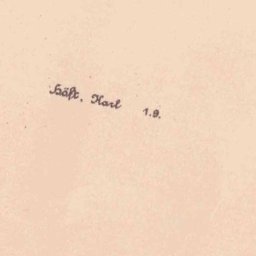 Häft, Karl 1.9.